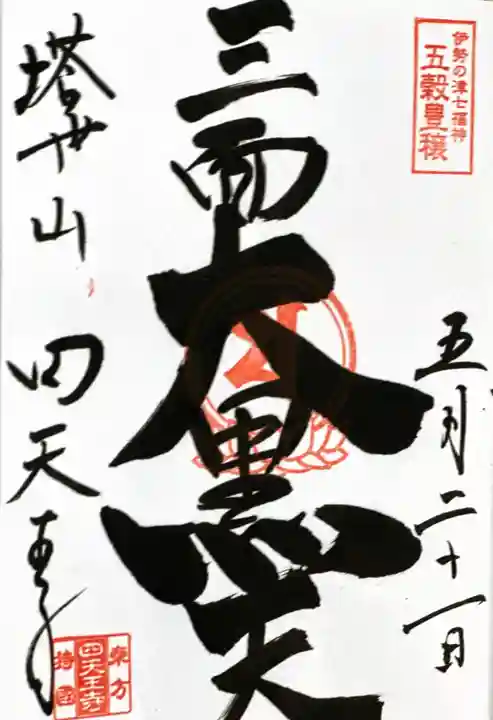 伊勢の津七福神
五穀豊穣
五月二十一日
三面大黒天
塔世山 四天王寺
東方
四天王寺
持国